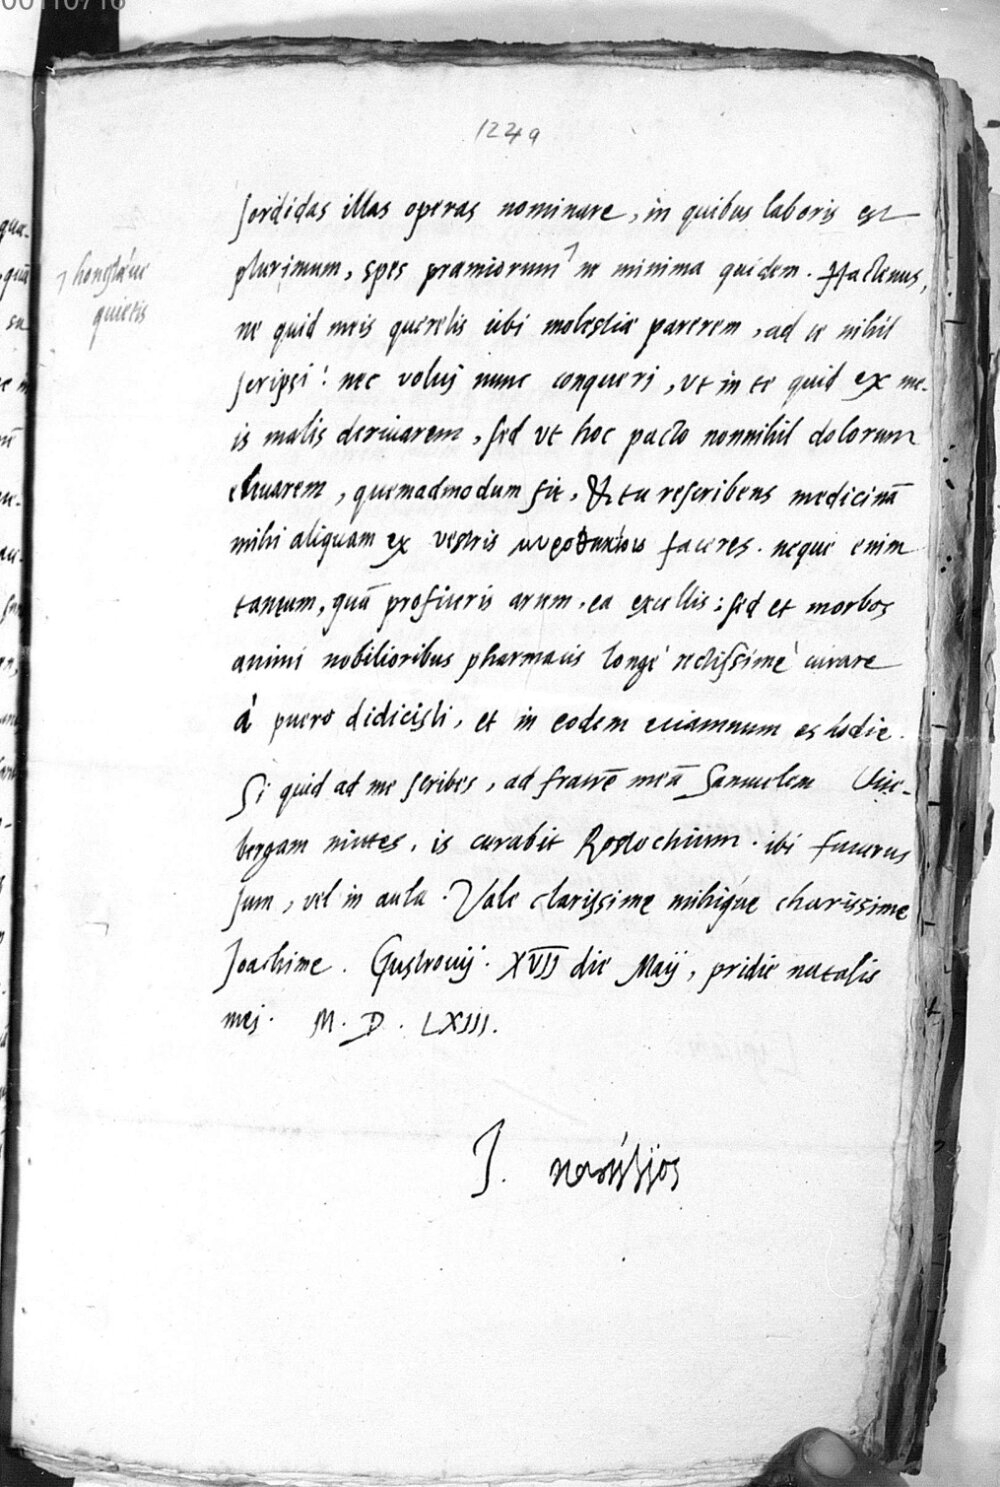 1229
sordidas illas operas nominare, in quibus laboris est
plurimum, spes præmiorum ⁊ ne minima quidem. Hactenus,
⁊ honestæ ve
quietis
ne quid meis querelis tibi molestiæ pararem, ad te nihil
scripsi: nec volui nunc conqueri, vt in te quid ex me-
is malis deriuarem, sed vt hoc pacto nonnihil dolorum
eleuarem, quemadmodum fit, & tu rescribens medicinā
mihi aliquam ex vestris μυροθηκίοις faceres. neque enim
tantum, quā profiteris artem, ea excellis: sed et morbos
animi nobilioribus pharmacis longè rectissimè curare
à puero didicisti, et in eodem etiamnum es hodie.
Si quid ad me scribes, ad fratrē meū Samuelem Vite-
bergam mittes, is curabit Rostochium. ibi futurus
sum, vel in aula. Vale clarissime mihique charissime
Joachime. Gustrouij. XVII die Maij, pridie natalis
mei. M. D. LXIII.
J.